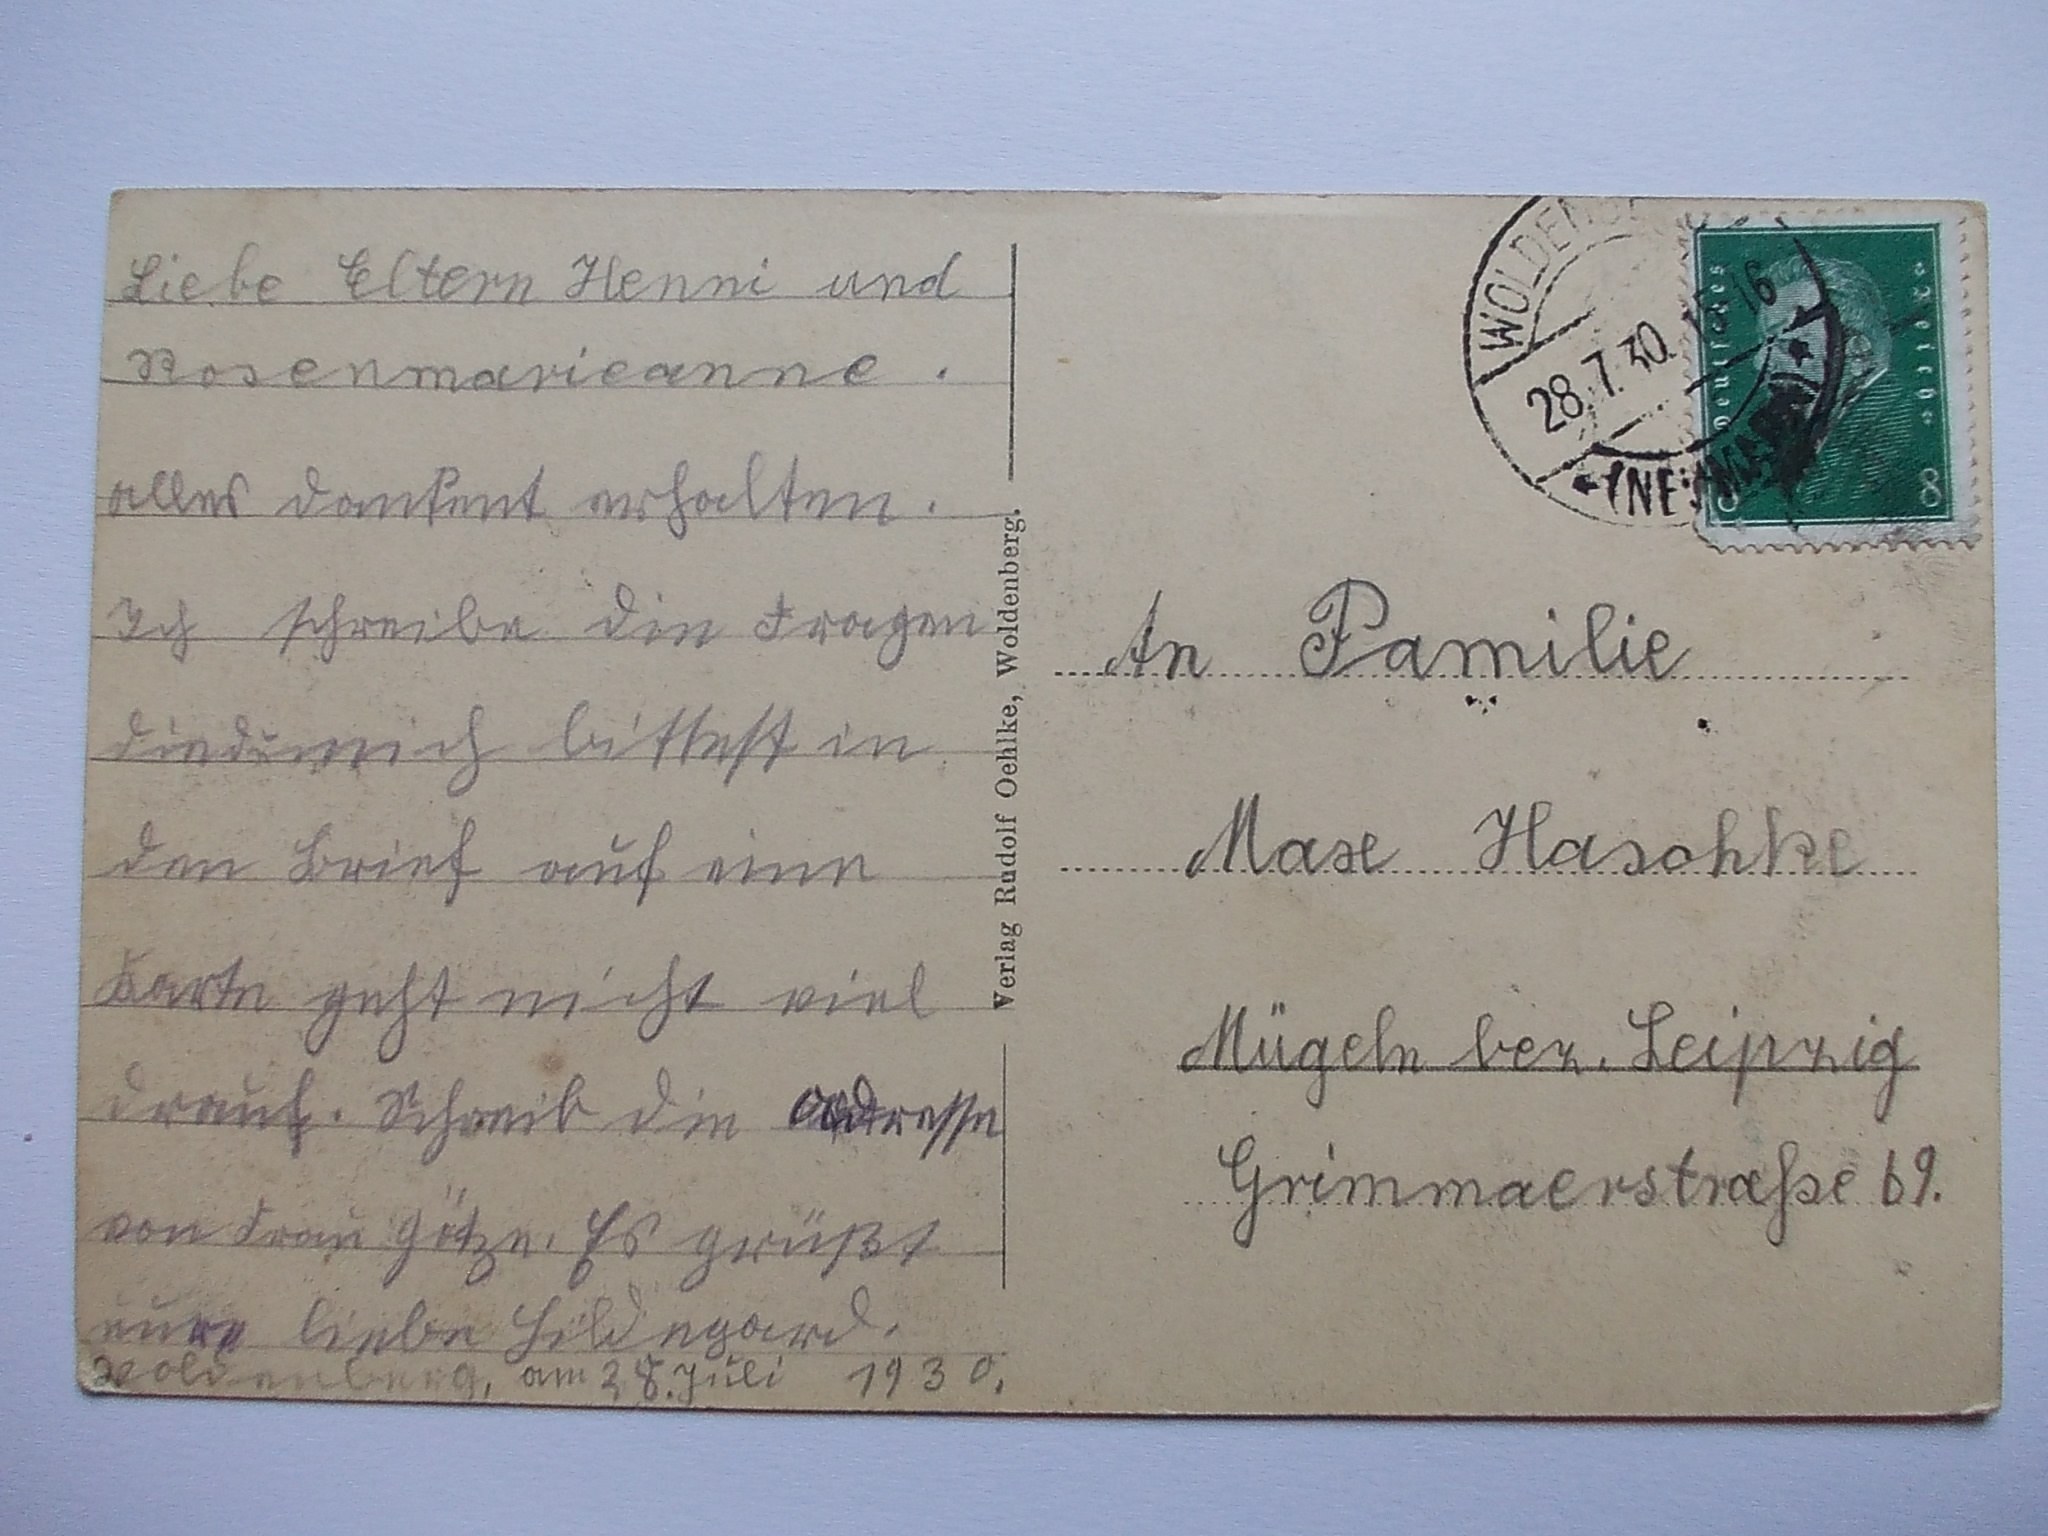 Liebe Eltern Henni und
Rosenmarieanne.
alles dankent erhalten.
Ich schreibe die Fragen
diedumich bittest in
den Brief auf eine
Karte geht nicht viel
drauf. Schreib die Adresse
von Frau Götze. Es grüßt
eure liebe Hildegard.
Woldenberg, am 28. Juli 1930.
Verlag Rudolf Oehlke, Woldenberg.
WOLDENBERG
28.7.30. 15-16
(NEUMARK)
Deutsches Reich
8 8
An Familie
Maxe Haschke
Mügeln bez. Leipzig
Grimmaerstraße 69.